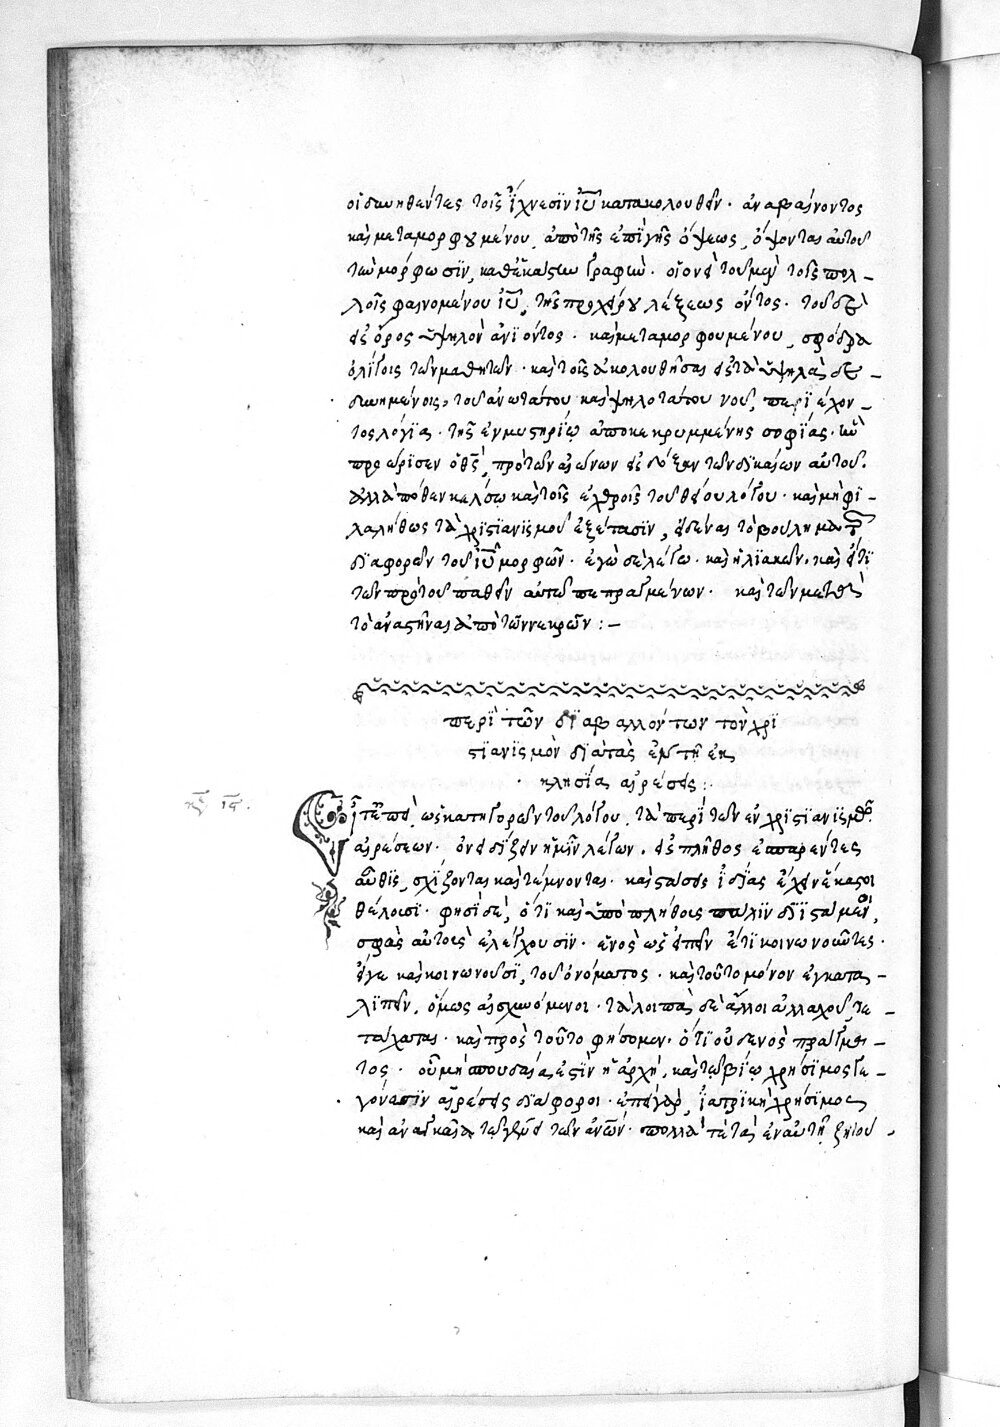 οἱ δυνηθέντες τοῖς ἴχνεσιν ἰῦ κατακολουθεῖν· ἀναβαίνοντος
καὶ μεταμορφουμένου, ἀπὸ τῆς ἐπὶ γῆς ὄψεως, ὄψονται αὐτοῦ
τὴν μόρφωσιν, καθ' ἑκάστην γραφὴν· οἱονεὶ τοῦ μὲν τοῖς πολ-
λοῖς φαινομένου ἰῦ, τῆς προχείρου λέξεως ὄντος· τοῦ δὲ
εἰς ὄρος ὑψηλὸν ἀνιόντος· καὶ μεταμορφουμένου, σφόδρα
ὀλίγοις τῶν μαθητῶν· καὶ τοῖς ἀκολουθῆσαι εἰς τὰ ὑψηλὰ δε-
δυνημένοις, τοῦ ἀνωτάτου καὶ ὑψηλοτάτου νοῦ, περιέχον-
τος λόγια· τῆς ἐν μυστηρίῳ ἀποκεκρυμμένης σοφίας· ἣν
προώρισεν ὁ θς, πρὸ τῶν αἰώνων εἰς δόξαν τῶν δικαίων αὐτοῦ.
ἀλλὰ πόθεν κέλσῳ καὶ τοῖς ἐχθροῖς τοῦ θείου λόγου· καὶ μὴ φι-
λαλήθως τὰ χριστιανισμοῦ ἐξετάσιν, εἰδέναι τὸ βούλημα τῶν
διαφορῶν τοῦ ἰῦ μορφῶν· ἐγὼ δὲ λέγω· καὶ ἡλικιῶν, καὶ εἴ τι
τῶν πρὸ τοῦ παθεῖν αὐτῷ πεπραγμένων· καὶ τῶν μετὰ
τὸ ἀναστῆναι ἀπὸ τῶν νεκρῶν :-
περὶ τῶν διαβαλλόντων τὸν χρι
στιανισμὸν διὰ τὰς ἐν τῇ ἐκ
κλησίᾳ αἱρέσεις :·
εἶτ' ἐπεὶ, ὡς κατηγορῶν τοῦ λόγου, τὰ περὶ τῶν ἐν χριστιανισμῷ
αἱρέσεων· ὀνειδίζει ἡμῖν λέγων· εἰς πλῆθος σπαρέντες
αὖθις, σχίζονται καὶ τέμνονται· καὶ στάσεις ἰδίας ἔχειν ἕκαστοι
θέλουσι· φησὶ δὲ, ὅτι καὶ ὑπὸ πλήθους πάλιν διιστάμενοι,
σφᾶς αὐτοὺς ἐλέγχουσιν· ἑνὸς ὡς εἰπεῖν ἔτι κοινωνοῦντες·
εἴγε καὶ κοινωνοῦσι, τοῦ ὀνόματος· καὶ τοῦτο μόνον ἐγκατα-
λιπεῖν, ὅμως αἰσχυνόμενοι· τὰ λοιπὰ δὲ ἄλλοι ἀλλαχοῦ τε-
τάχαται· καὶ πρὸς τοῦτο φήσομεν· ὅτι οὐδενὸς πράγμα-
τος· οὗ μὴ σπουδαία ἐστὶν ἡ ἀρχὴ, καὶ τῷ βίῳ χρήσιμος γε-
γόνασιν αἱρέσεις διάφοροι· ἐπεὶ γὰρ ἰατρικὴ χρήσιμος
καὶ ἀναγκαία τῷ γένει τῶν ἀνων· πολλά τε τὰ ἐν αὐτῇ ζητού